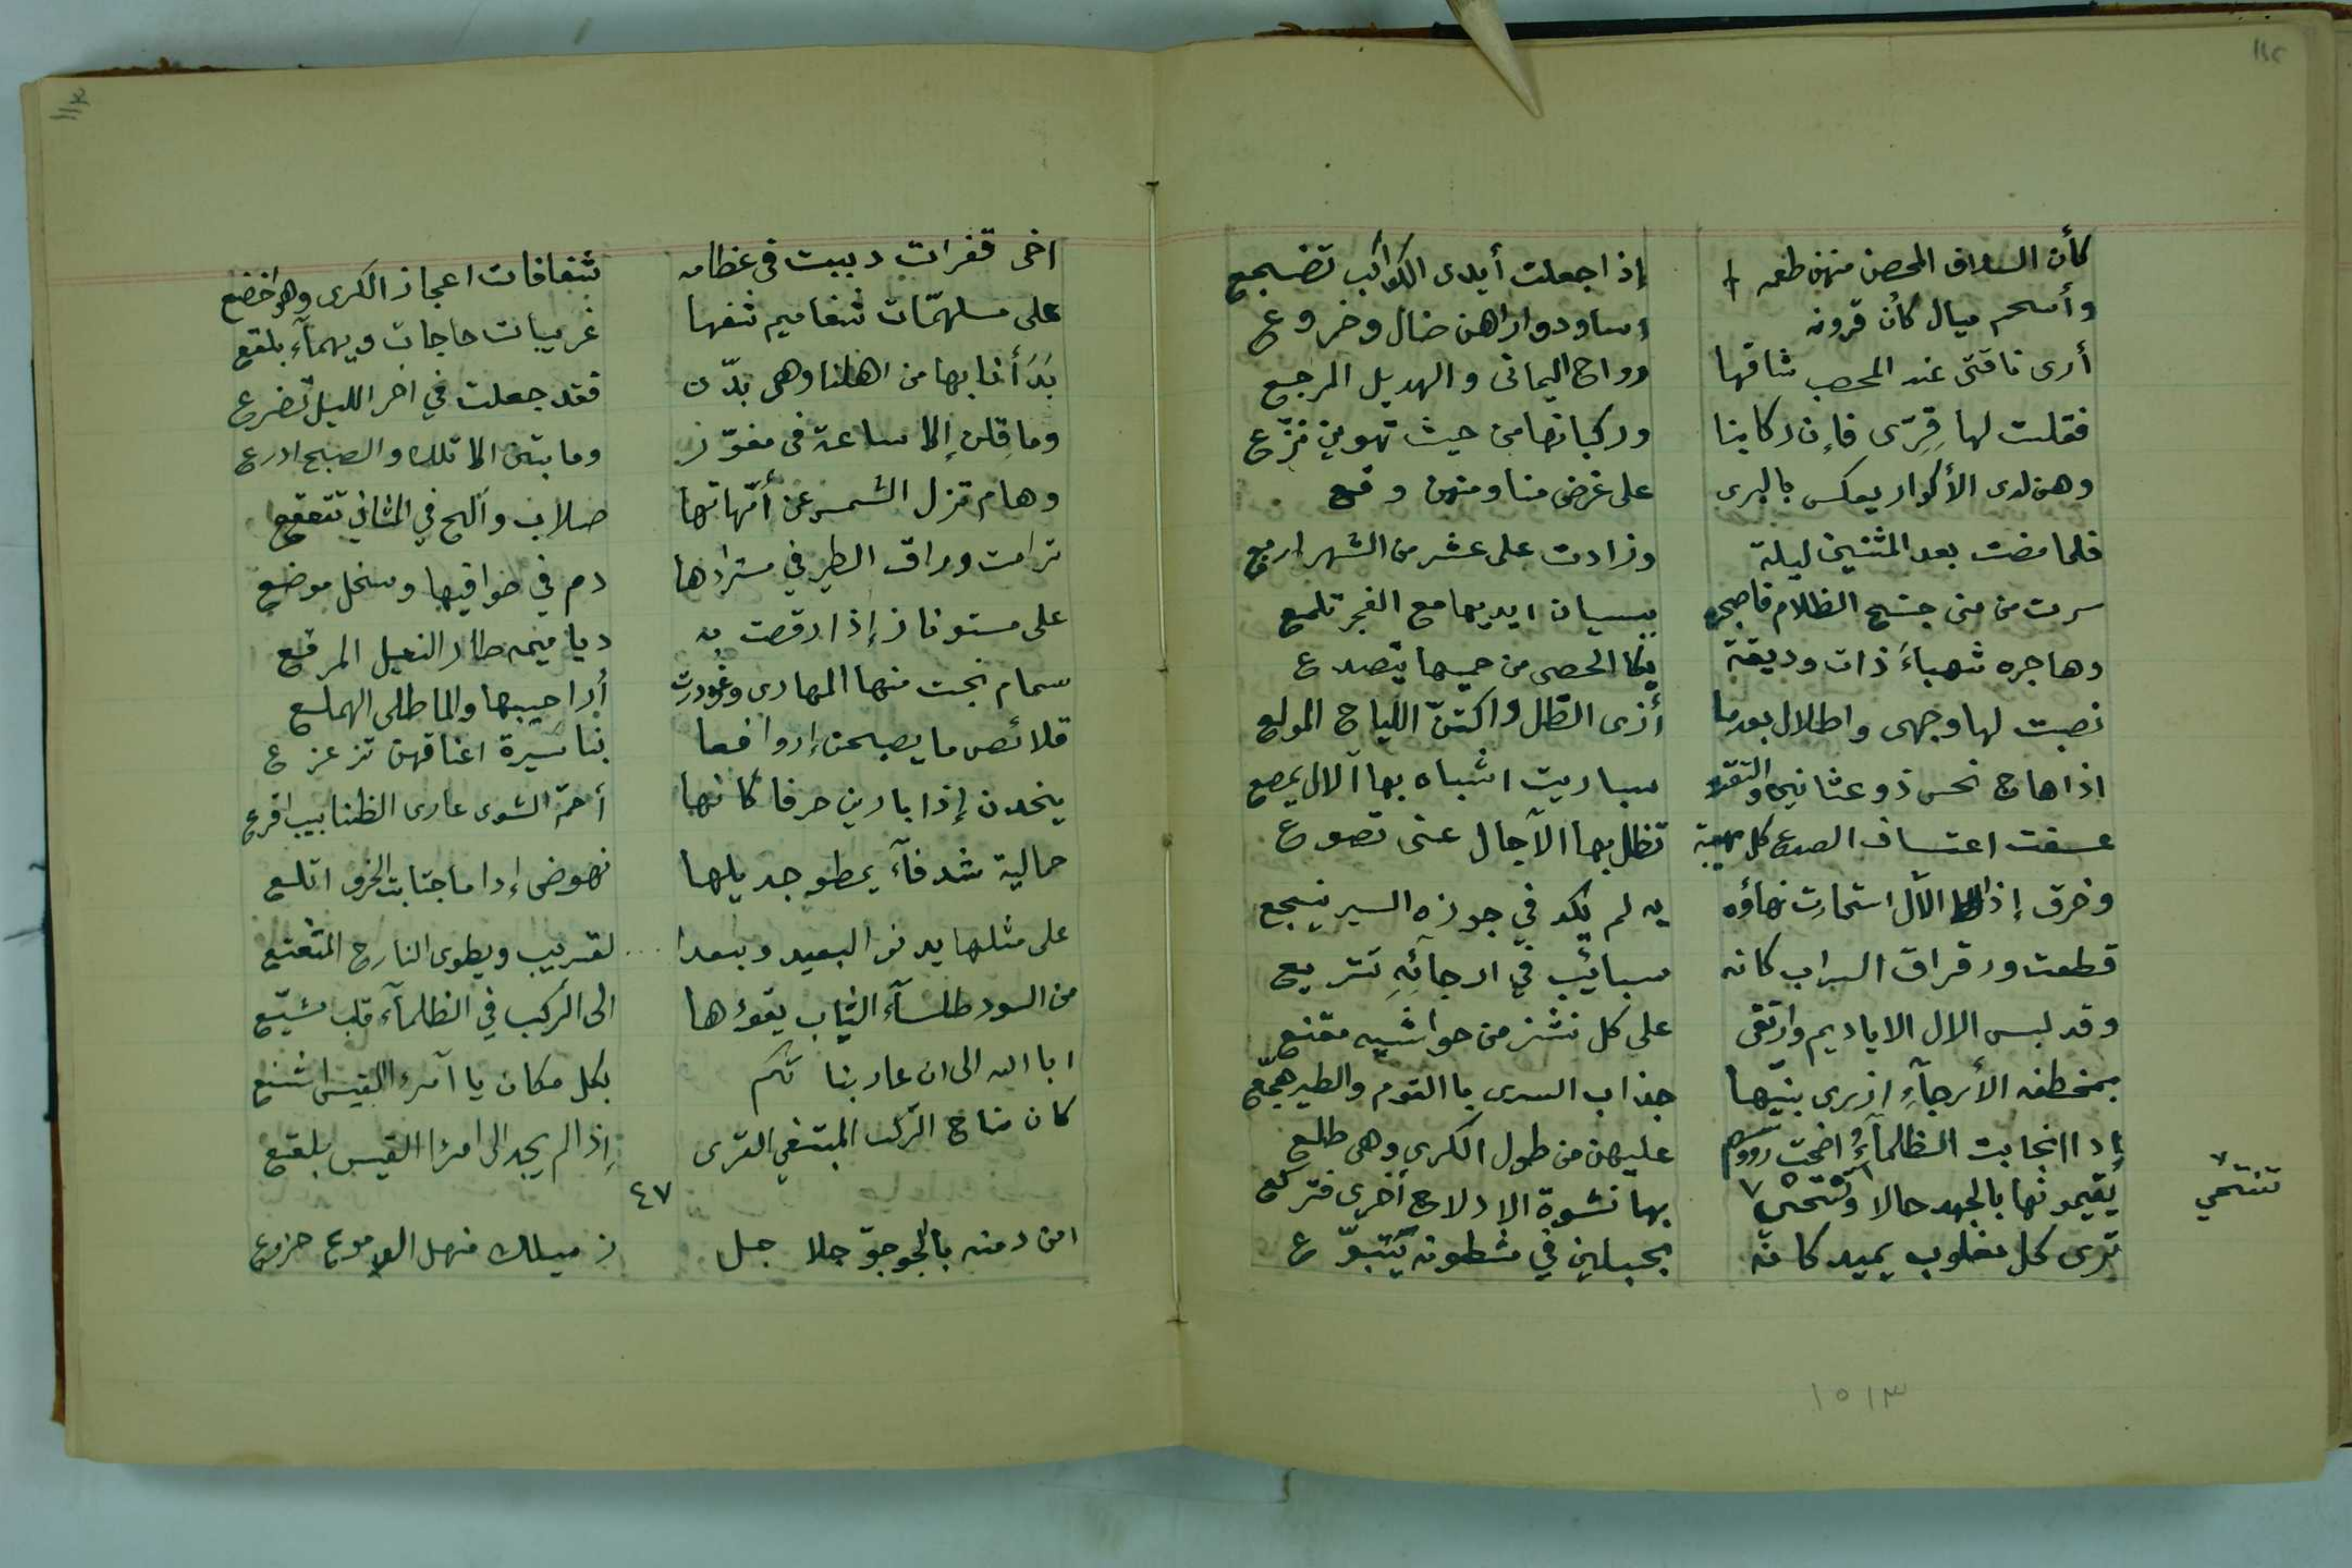 ١١٢
كأن السلاف المحصن منهن طعمه إذا جعلت أيدى الكواكب تضجع
وأسحم ميال كأن قرونه اساود واراهن ضال وخروع
أرى ناقتى عند المحصب شاقها رواح اليمانى والهديل المرجع
فقلت لها قِرّى فإن ركابنا وركبانها من حيث تهوين نزّع
وهن لدى الأكوار يعكس بالبرى على غرض منا ومنهن وقع
فلما مضت بعد المثنين ليلة وزادت على عشر من الشهر اربع
سرت من منى جنح الظلام فاصبحت ببسيان ايديها مع الفجر تلمع
وهاجره شهباءَ ذات وديقة يكا الحصى من حميها يتصدع
نصبت لها وجهى واطلال بعدما أزى الظل واكتنّ اللياح المولع
اذا هاج نحس ذو عثانين والتقت سباريت اشباه بها آلال يمصع
عسفت اعتساف الصدع كل مهيبة تظل بها الآجال عنى تصوع
وخرق إذا الآل استحارت نهاؤه به لم يكد في جوزه السير ينجع
قطعت ورقراق السراب كانه سبائب في ارجائِهِ تتريع
وقد لبس الال الاياديم وارتقى على كل نشز من حواشيه مقنع
بمخطفه الأرجآءِ ازرى بنيّها جذاب السرى باالقوم والطير هجّع
إداانجابت الظلمآءُ اضحت رووسهم عليهن من طول الكرى وهى طلع
يُقيمونها بالجهد حالا وتنتحي بها نشوة الادلاج أخرى فتركع
تنتحي
ترى كل مغلوب يميد كانه بحبلين في مشطونه يتبوّع
١٥١٣
١١٣
اخى قفرات دببت في عظامه شفافات اعجاز الكرى وهو اخضع
على مسلهمّات شغاميم شفها غريبات حاجات ويهمآء بلقع
بَدَأنا بها من اهلنا وهى بدّن فقد جعلت في اخر الليل تضرع
وما قلن إلا ساعة فى مغوّر وما بتن الا تلك والصبح ادرع
وهام تزل الشمس عن أمّهاتها صلاب وألح في المثاني تتقعقع
ترامت وراق الطير في مسترادها دم في حوافيها وسخل موضع
على مستوفاز إذا رقصت به دياميمه طار النعيل المرقع
سمام نجت منها المهارى وغُودرت أراحيبها والماطلى الهملع
قلائص ما يصبحن إلا روافعا بنا سَيرة اعناقهن تزعزع
يخدن إذا بارين حرفا كانها أحمّ الشوى عارى الظنابيب اقرع
جمالية شدفآء يمطو جديلها نهوض إدا ما اجتابت الخرق اتلع
على مثلها يدنو البعيد ويبعدا... لقريب ويطوى النازح المتعتع
من السود طلسآء الثياب يقودها الى الركب في الظلمآء قلب مشيّع
ابا الله الى ان عار بناتكم بكل مكان يا آمرء القيس اشنع
كان مناخ الرّكب المبتغي القرى إذا لم يجد الى امرا القيس بلقع
٤٧
امن دمنه بالجوجوّ جلاجل زميلك منهل الدموع جزوع